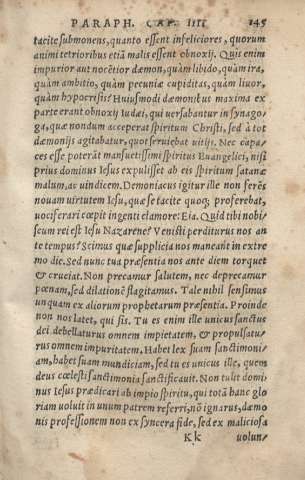 PARAPH. CAP. IIII 145
tacite submonens, quanto essent infeliciores, quorum
animi tetrioribus etiã malis essent obnoxij. Quis enim
impurior aut nocẽtior dæmon, quàm libido, quàm ira,
quàm ambitio, quàm pecuniæ cupiditas, quàm liuor,
quàm hypocrisis? Huiusmodi dæmonijs maxima ex
parte erant obnoxij Iudæi, qui uersabantur in synago
ga, quæ nondum acceperat spiritum Christi, sed à tot
dæmonijs agitabatur, quot seruiebat uitijs. Nec capa/
ces esse poterãt mansuetissimi spiritus Euangelici, nisi
prius dominus Iesus expulisset ab eis spiritum satanæ
malum, ac uindicem. Demoniacus igitur ille non ferẽs
nouam uirtutem Iesu, quæ se tacite quoq; proferebat,
uociferari cœpit ingenti clamore: Eia. Quid tibi nobi/
scum rei est Iesu Nazarene? Venisti perditurus nos an
te tempus? Scimus quæ supplicia nos maneãt in extre
mo die. Sed nunc tua præsentia nos ante diem torquet
& cruciat. Non precamur salutem, nec deprecamur
pœnam, sed dilationẽ flagitamus. Tale nihil sensimus
unquam ex aliorum prophetarum præsentia. Proinde
non nos latet, qui sis. Tu es enim ille unicus sanctus
dei debellaturus omnem impietatem, & propulsatu/
rus omnem impuritatem. Habet lex suam sanctimoni/
am, habet suam mundiciam, sed tu es unicus ille, quem
deus cœlesti sanctimonia sanctificauit. Non tulit domi
nus Iesus prædicari ab impio spiritu, qui totã hanc glo
riam uoluit in unum patrem referri, nõ ignarus, dæmo
nis professionem non ex syncera fide, sed ex maliciosa
K k uolun/